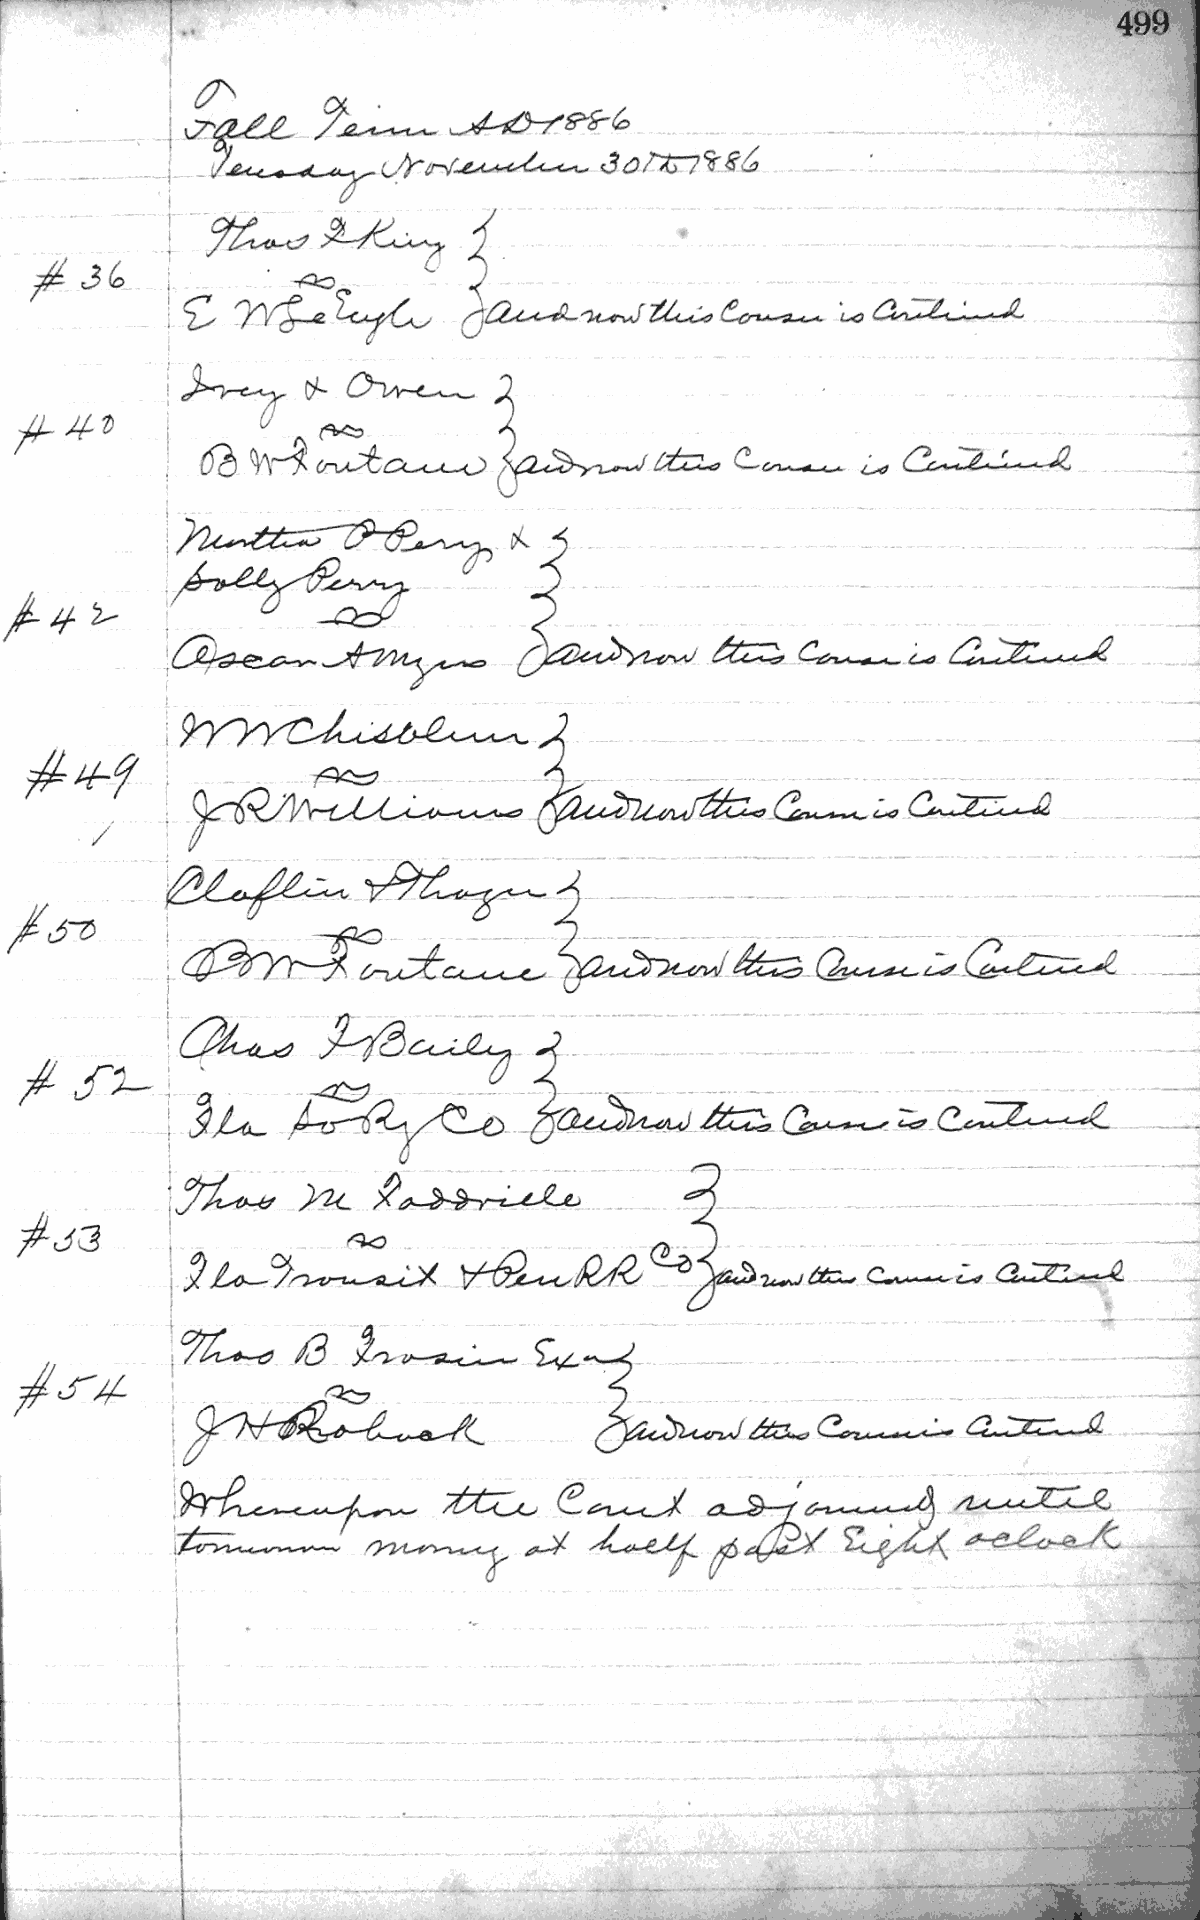 499
Fall Term AD 1886
Tuesday November 30th 1886
Thos F King
# 36
vs
E W L'Engle and now this Cause is Contined
Ivey & Owen
# 40
vs
B W Fontane and now this Cause is Contined
Martha P Perry &
Solly Perry
# 42
vs
Oscar A Myers and now this Cause is Contined
W W Chisolum
# 49
vs
J R Williams and now this Cause is Contined
Claflin & Thayer
# 50
vs
B W Fontane and now this Cause is Contined
Chas F Baily
# 52
vs
Fla So Ry Co and now this Cause is Contined
Thos M
# 53
vs
Fla Transit & Pen RR Co and now this Cause is Contined
Thos B Exr
# 54
vs
J H and now this Cause is Contined
Whereupon the Court adjourned until
tomorrow morning at half past Eight oclock